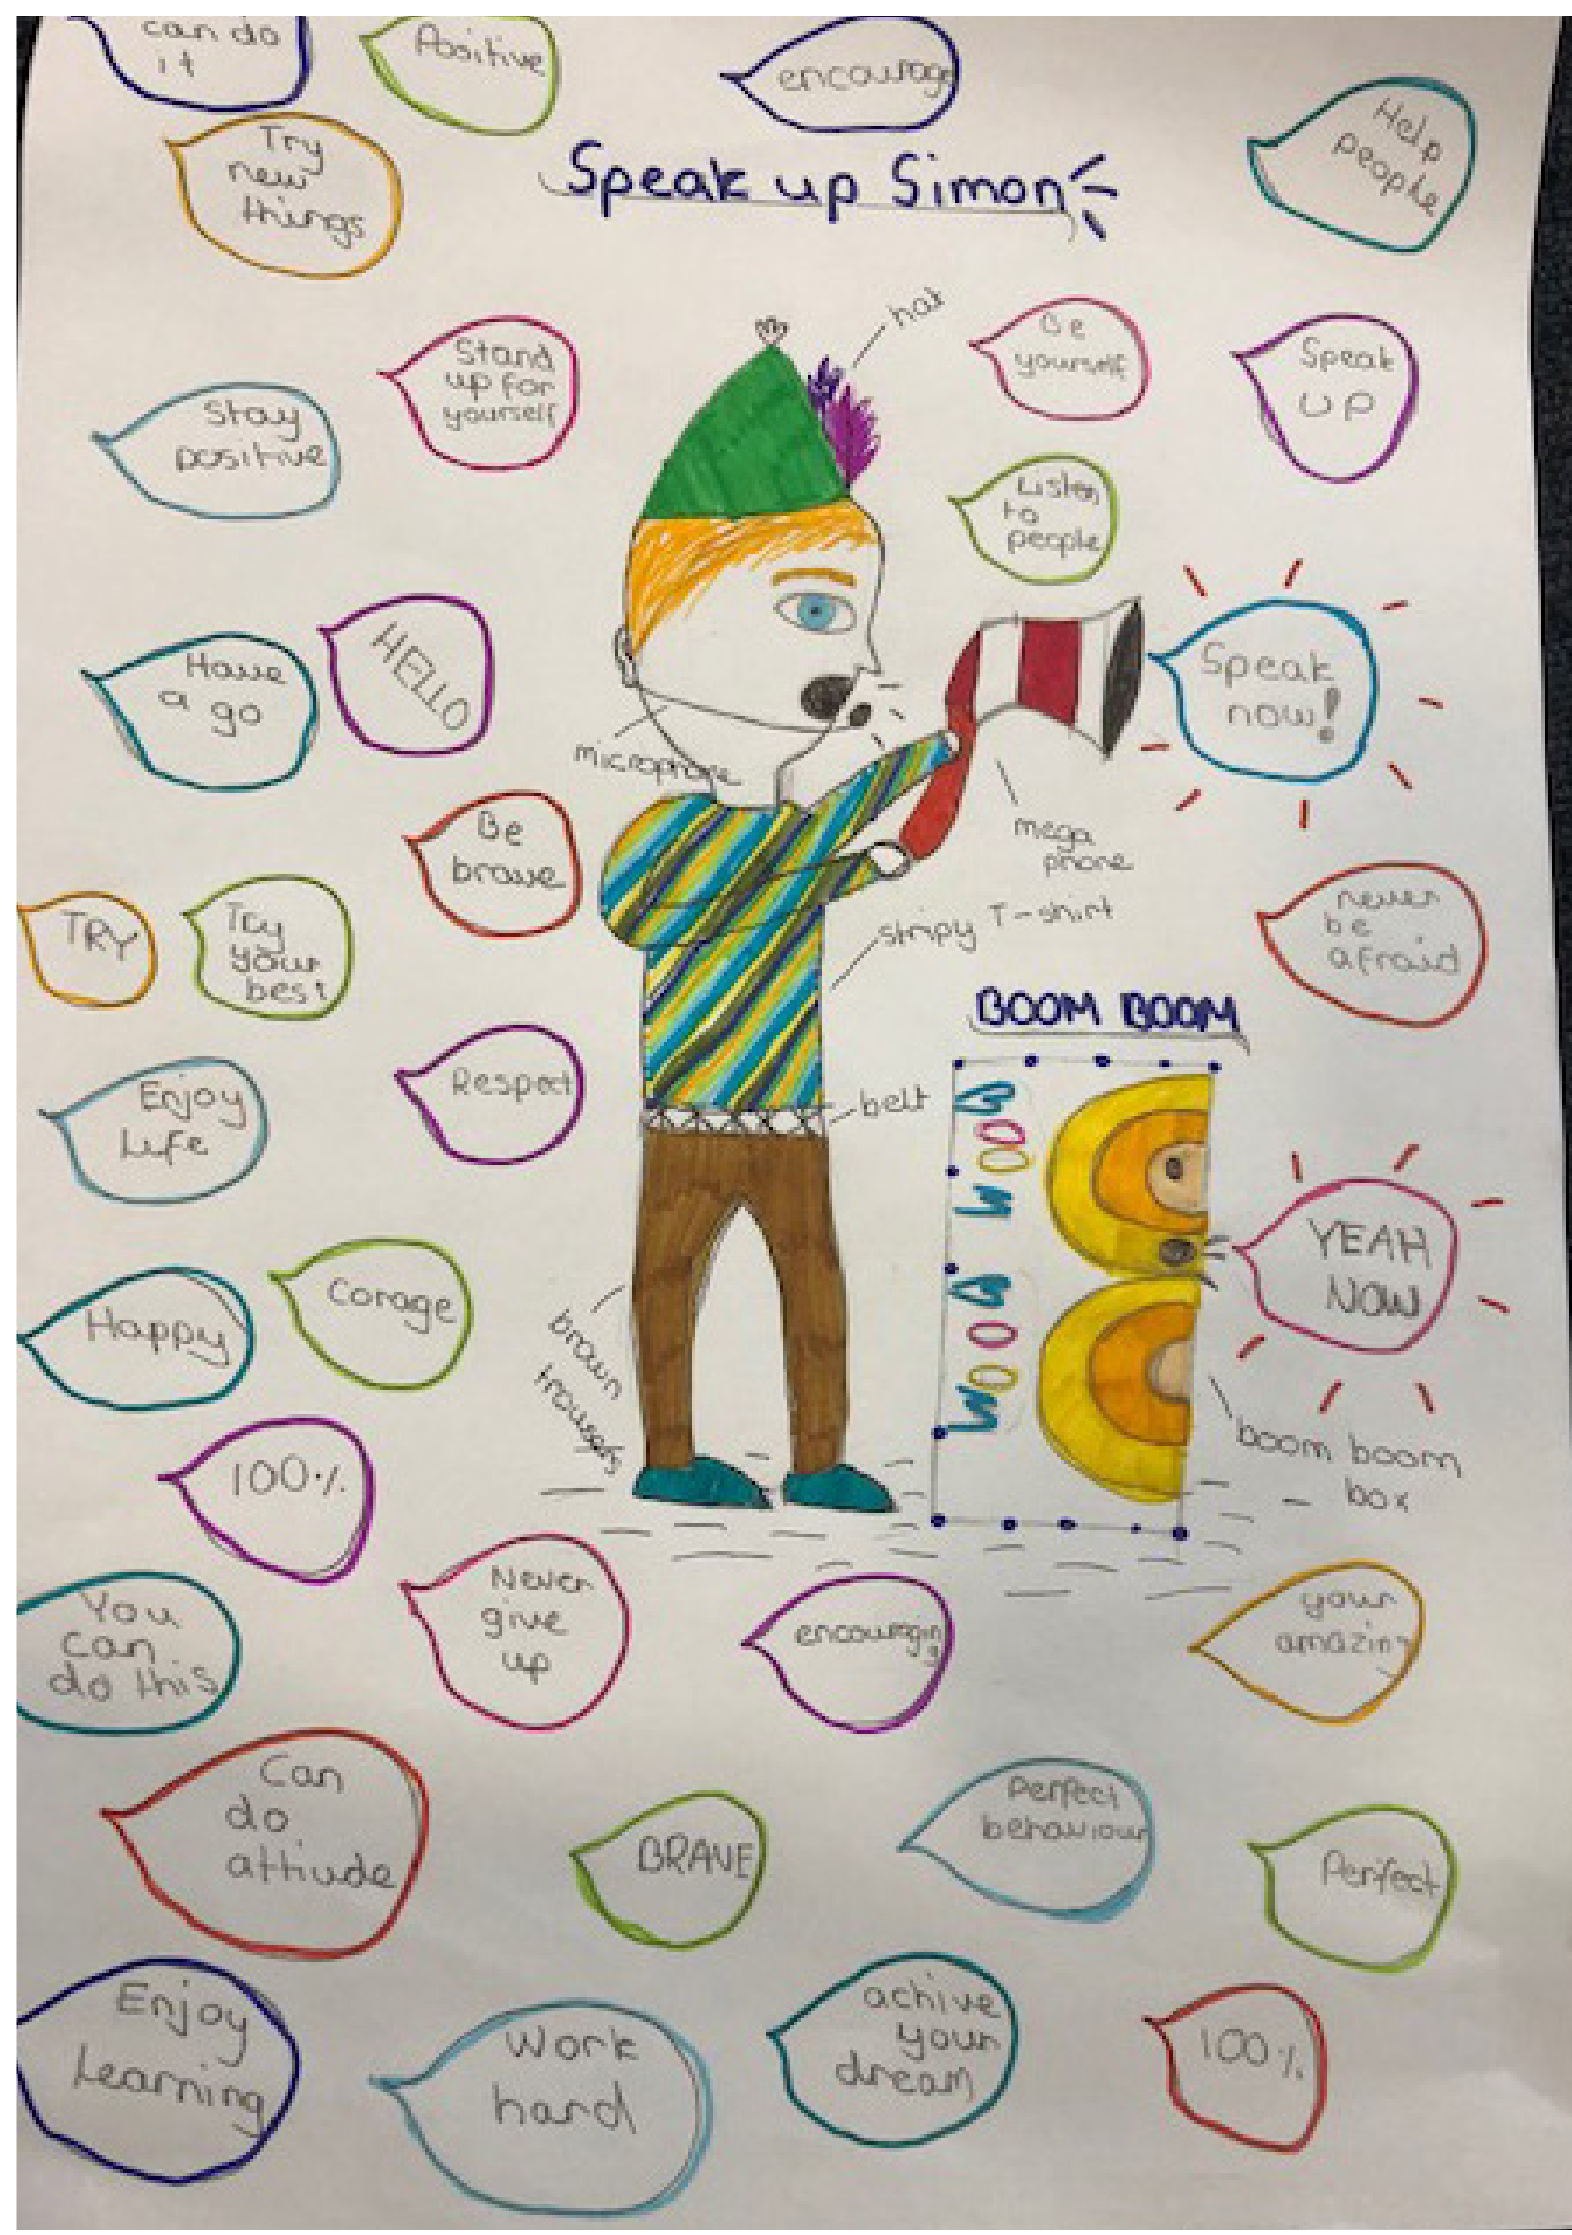 can do
it
Positive
encourage
Help
people
Try
new
things
Speak up Simon
hat
Stand
up for
yourself
Be
yourself
Speak
up
Stay
positive
Listen
to
people
Have
a go
HELLO
Speak
now!
microphone
mega
phone
Be
brave
TRY
Try
your
best
stripy T-shirt
never
be
afraid
BOOM BOOM
Enjoy
Life
Respect
belt
BOOM
BOOM
YEAH
NOW
Happy
Corage
brown
trousers
boom boom
box
100%
You
can
do this
Never
give
up
encouraging
your
amazing
Can
do
attiude
BRAVE
Perfect
behaviour
Perfect
Enjoy
Learning
Work
hard
achive
your
dream
100%